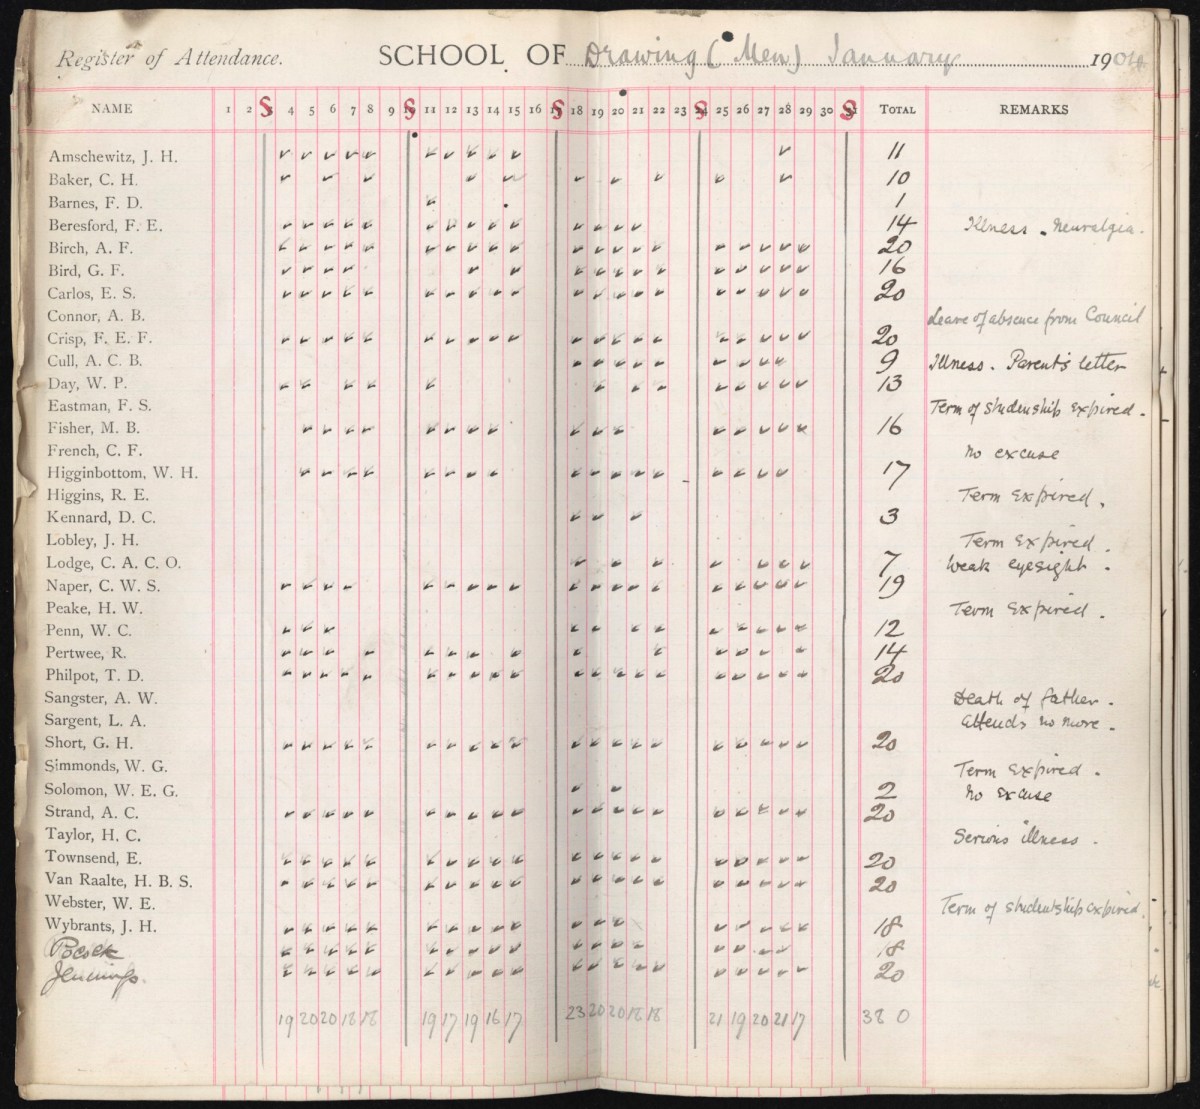 Register of Attendance. SCHOOL OF Drawing (Men) January 1904
NAME 1 2 S 4 5 6 7 8 9 S 11 12 13 14 15 16 S 18 19 20 21 22 23 S 25 26 27 28 29 30 S TOTAL REMARKS
Amschewitz, J. H. 11
Baker, C. H. 10
Barnes, F. D. 1
Beresford, F. E. 14 Illness - Neuralgia.
Birch, A. F. 20
Bird, G. F. 16
Carlos, E. S. 20
Connor, A. B. Leave of absence from Council
Crisp, F. E. F. 20
Cull, A. C. B. 9 Illness. Parent's letter
Day, W. P. 13
Eastman, F. S. Term of studenship expired.
Fisher, M. B. 16
French, C. F. No excuse
Higginbottom, W. H. 17
Higgins, R. E. Term Expired.
Kennard, D. C. 3
Lobley, J. H. Term Expired.
Lodge, C. A. C. O. 7 Weak eyesight.
Naper, C. W. S. 19
Peake, H. W. Term Expired.
Penn, W. C. 12
Pertwee, R. 14
Philpot, T. D. 20
Sangster, A. W. Death of father.
Sargent, L. A. Attends no more.
Short, G. H. 20
Simmonds, W. G. Term Expired.
Solomon, W. E. G. 2 No excuse
Strand, A. C. 20
Taylor, H. C. Serious illness.
Townsend, E. 20
Van Raalte, H. B. S. 20
Webster, W. E. Term of studentship expired.
Wybrants, J. H. 18
Pocock 18
Jennings. 20
19 20 20 18 18 19 17 19 16 17 23 20 20 18 18 21 19 20 21 17 38 0